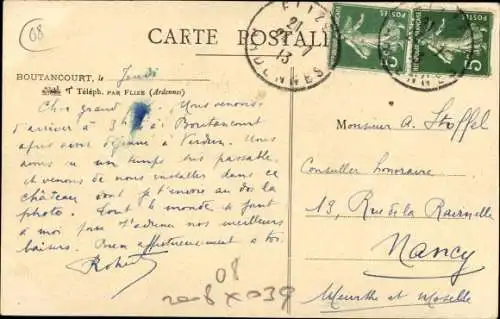 08
CARTE POSTALE
FLIZE
21
13
ARDENNES
5
5
BOUTANCOURT, le Jeudi
Téléph. PAR FLIZE (Ardennes)
Cher grand Nous venons
d'arriver à 3h à Boutancourt
après avoir déjeuné à Verdun. Nous
avons eu un temps très passable,
et venons de nous installer dans ce
château dont je t'envoie au dos la
photo. Tout le monde se joint
à moi pour t'adresser nos meilleurs
baisers. Bien affectueusement à toi.
Robert
Monsieur A. Stoffel
Conseiller honoraire
13, Rue de la Ravinelle
Nancy
Meurthe et Moselle
08
208 X 039